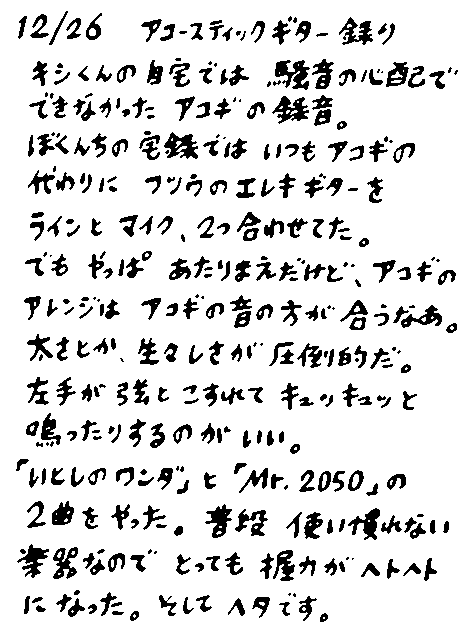 12/26 アコースティックギター録り
キシくんの自宅では 騒音の心配で
できなかった アコギの録音。
ぼくんちの宅録では いつもアコギの
代わりに フツウのエレキギターを
ラインと マイク、2つ合わせてた。
でも やっぱ あたりまえだけど、アコギの
アレンジは アコギの音の方が 合うなあ。
太さとか、生々しさが 圧倒的だ。
左手が 弦と こすれて キュッキュッと
鳴ったりするのが いい。
「いとしのワンダ」と「Mr. 2050」の
2曲を やった。 普段 使い慣れない
楽器なので とっても 握力が ヘトヘト
に なった。 そして ヘタです。